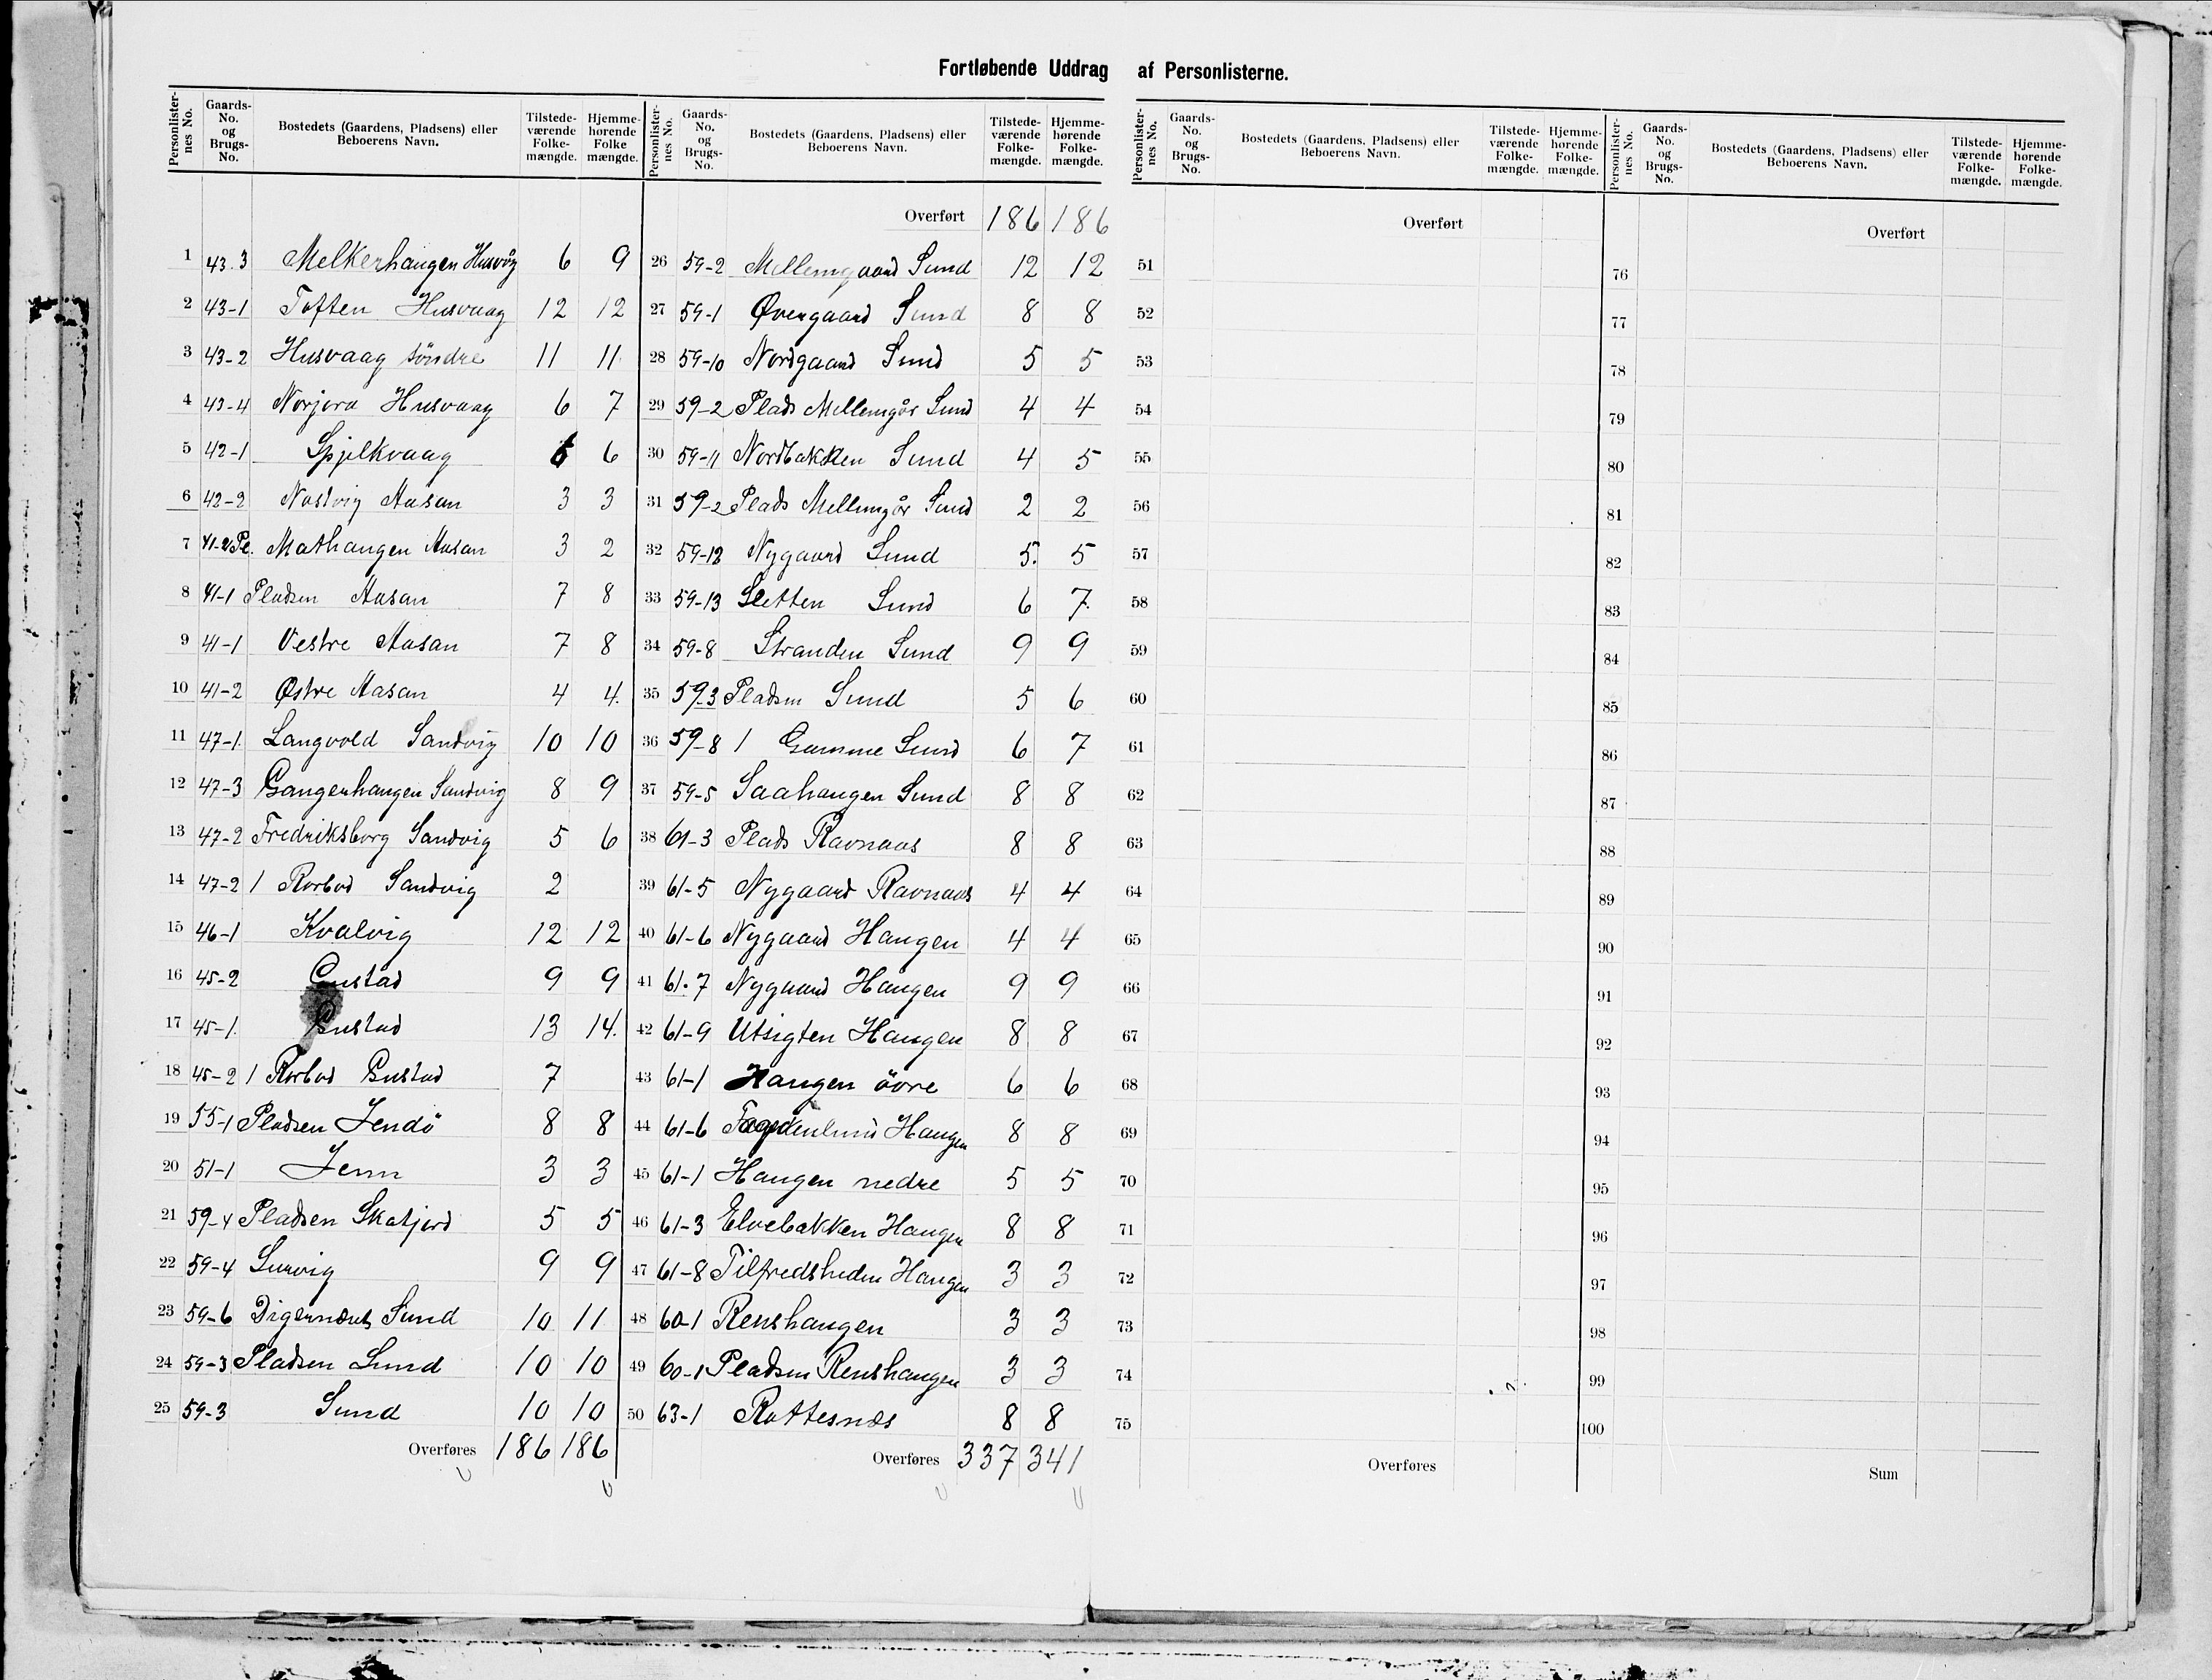 Fortløbende Uddrag af Personlisterne.
Personlisternes No. | Gaards-No. og Brugs-No. | Bostedets (Gaardens, Pladsens) eller Beboerens Navn. | Tilstedeværende Folkemængde. | Hjemmehørende Folkemængde.
1 43.3 Melkerhaugen Husvåg 6 9
2 43-1 Toften Husvaag 12 12
3 43-2 Husvaag söndre 11 11
4 43-4 Norjora Husvaag 6 7
5 42-1 Spjelkvaag 6 6
6 42-2 Nastvig Aasan 3 3
7 41-2 Pl. Mathaugen Aasan 3 2
8 41-1 Pladsen Aasan 7 8
9 41-1 Vestre Aasan 7 8
10 41-2 Østre Aasan 4 4
11 47-1 Langvold Sandvig 10 10
12 47-3 Gangerhaugen Sandvig 8 9
13 47-2 Fredriksborg Sandvig 5 6
14 47-2 1 Rorbod Sandvig 2
15 46-1 Kvalvig 12 12
16 45-2 Gustad 9 9
17 45-1 Gustad 13 14
18 45-2 1 Rorbod Gustad 7
19 55-1 Pladsen Jendö 8 8
20 51-1 Jenn 3 3
21 59-4 Pladsen Skatjord 5 5
22 59-4 Survig 9 9
23 59-6 Digernæs Sund 10 11
24 59-3 Pladsen Sund 10 10
25 59-3 Sund 10 10
Overføres 186 186
Overført 186 186
26 59-2 Mellemgaard Sund 12 12
27 59-1 Øvergaard Sund 8 8
28 59-10 Nordgaard Sund 5 5
29 59-2 Plads Mellemgår Sund 4 4
30 59-11 Nordbakken Sund 4 5
31 59-2 Plads Mellemgår Sund 2 2
32 59-12 Nygaard Sund 5 5
33 59-13 Sletten Sund 6 7
34 59-8 Stranden Sund 9 9
35 59-3 Pladsen Sund 5 6
36 59-8 1 Gamme Sund 6 7
37 59-5 Saahaugen Sund 8 8
38 61-3 Plads Ravnaas 8 8
39 61-5 Nygaard Ravnaas 4 4
40 61-6 Nygaard Haugen 4 4
41 61-7 Nygaard Haugen 9 9
42 61-9 Utsigten Haugen 8 8
43 61-1 Haugen övre 6 6
44 61-6 Haugen 8 8
45 61-1 Haugen nedre 5 5
46 61-3 Elvebakken Haugen 8 8
47 61-8 Tilfredsheden Haugen 3 3
48 60-1 Renshaugen 3 3
49 60-1 Pladsen Renshaugen 3 3
50 63-1 Rottesnæs 8 8
Overføres 337 341
Overført
51
52
53
54
55
56
57
58
59
60
61
62
63
64
65
66
67
68
69
70
71
72
73
74
75
Overføres
Overført
76
77
78
79
80
81
82
83
84
85
86
87
88
89
90
91
92
93
94
95
96
97
98
99
100
Sum